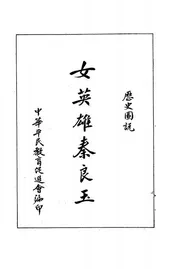 歷史圖說
女英雄秦良玉
中華平民教育促進會編印